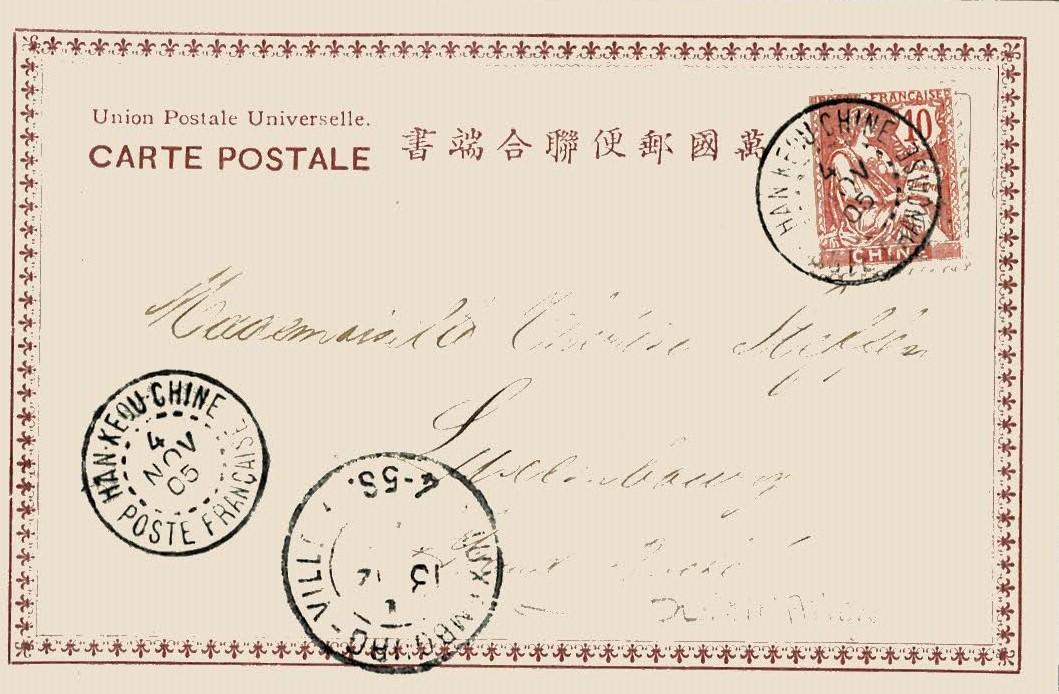 Union Postale Universelle.
CARTE POSTALE
書端合聯便郵國萬
POSTE FRANÇAISE
10
CHINE
HAN-KEOU-CHINE
4
NOV
05
POSTE FRANÇAISE
Mademoiselle Thérèse Steffen
Luxembourg
HAN-KEOU-CHINE
4
NOV
05
POSTE FRANCAISE
LUXEMBOURG-VILLE
4-5S.